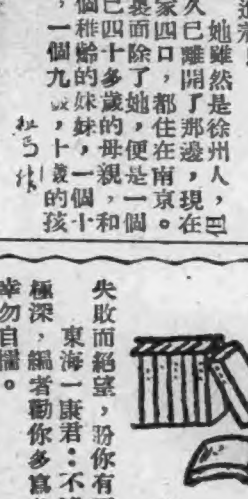 她雖然是徐州人，
久已離開了那邊，現在
家四口，都住在南京。
裏面除了她，便是一個
已四十多歲的母親，和
個稚齡的妹妹，一個十
，一個九歲，十歲的孩
失敗而絕望，盼你有
東海一康君：不
極深，編者勸你多寫
幸勿自擱。